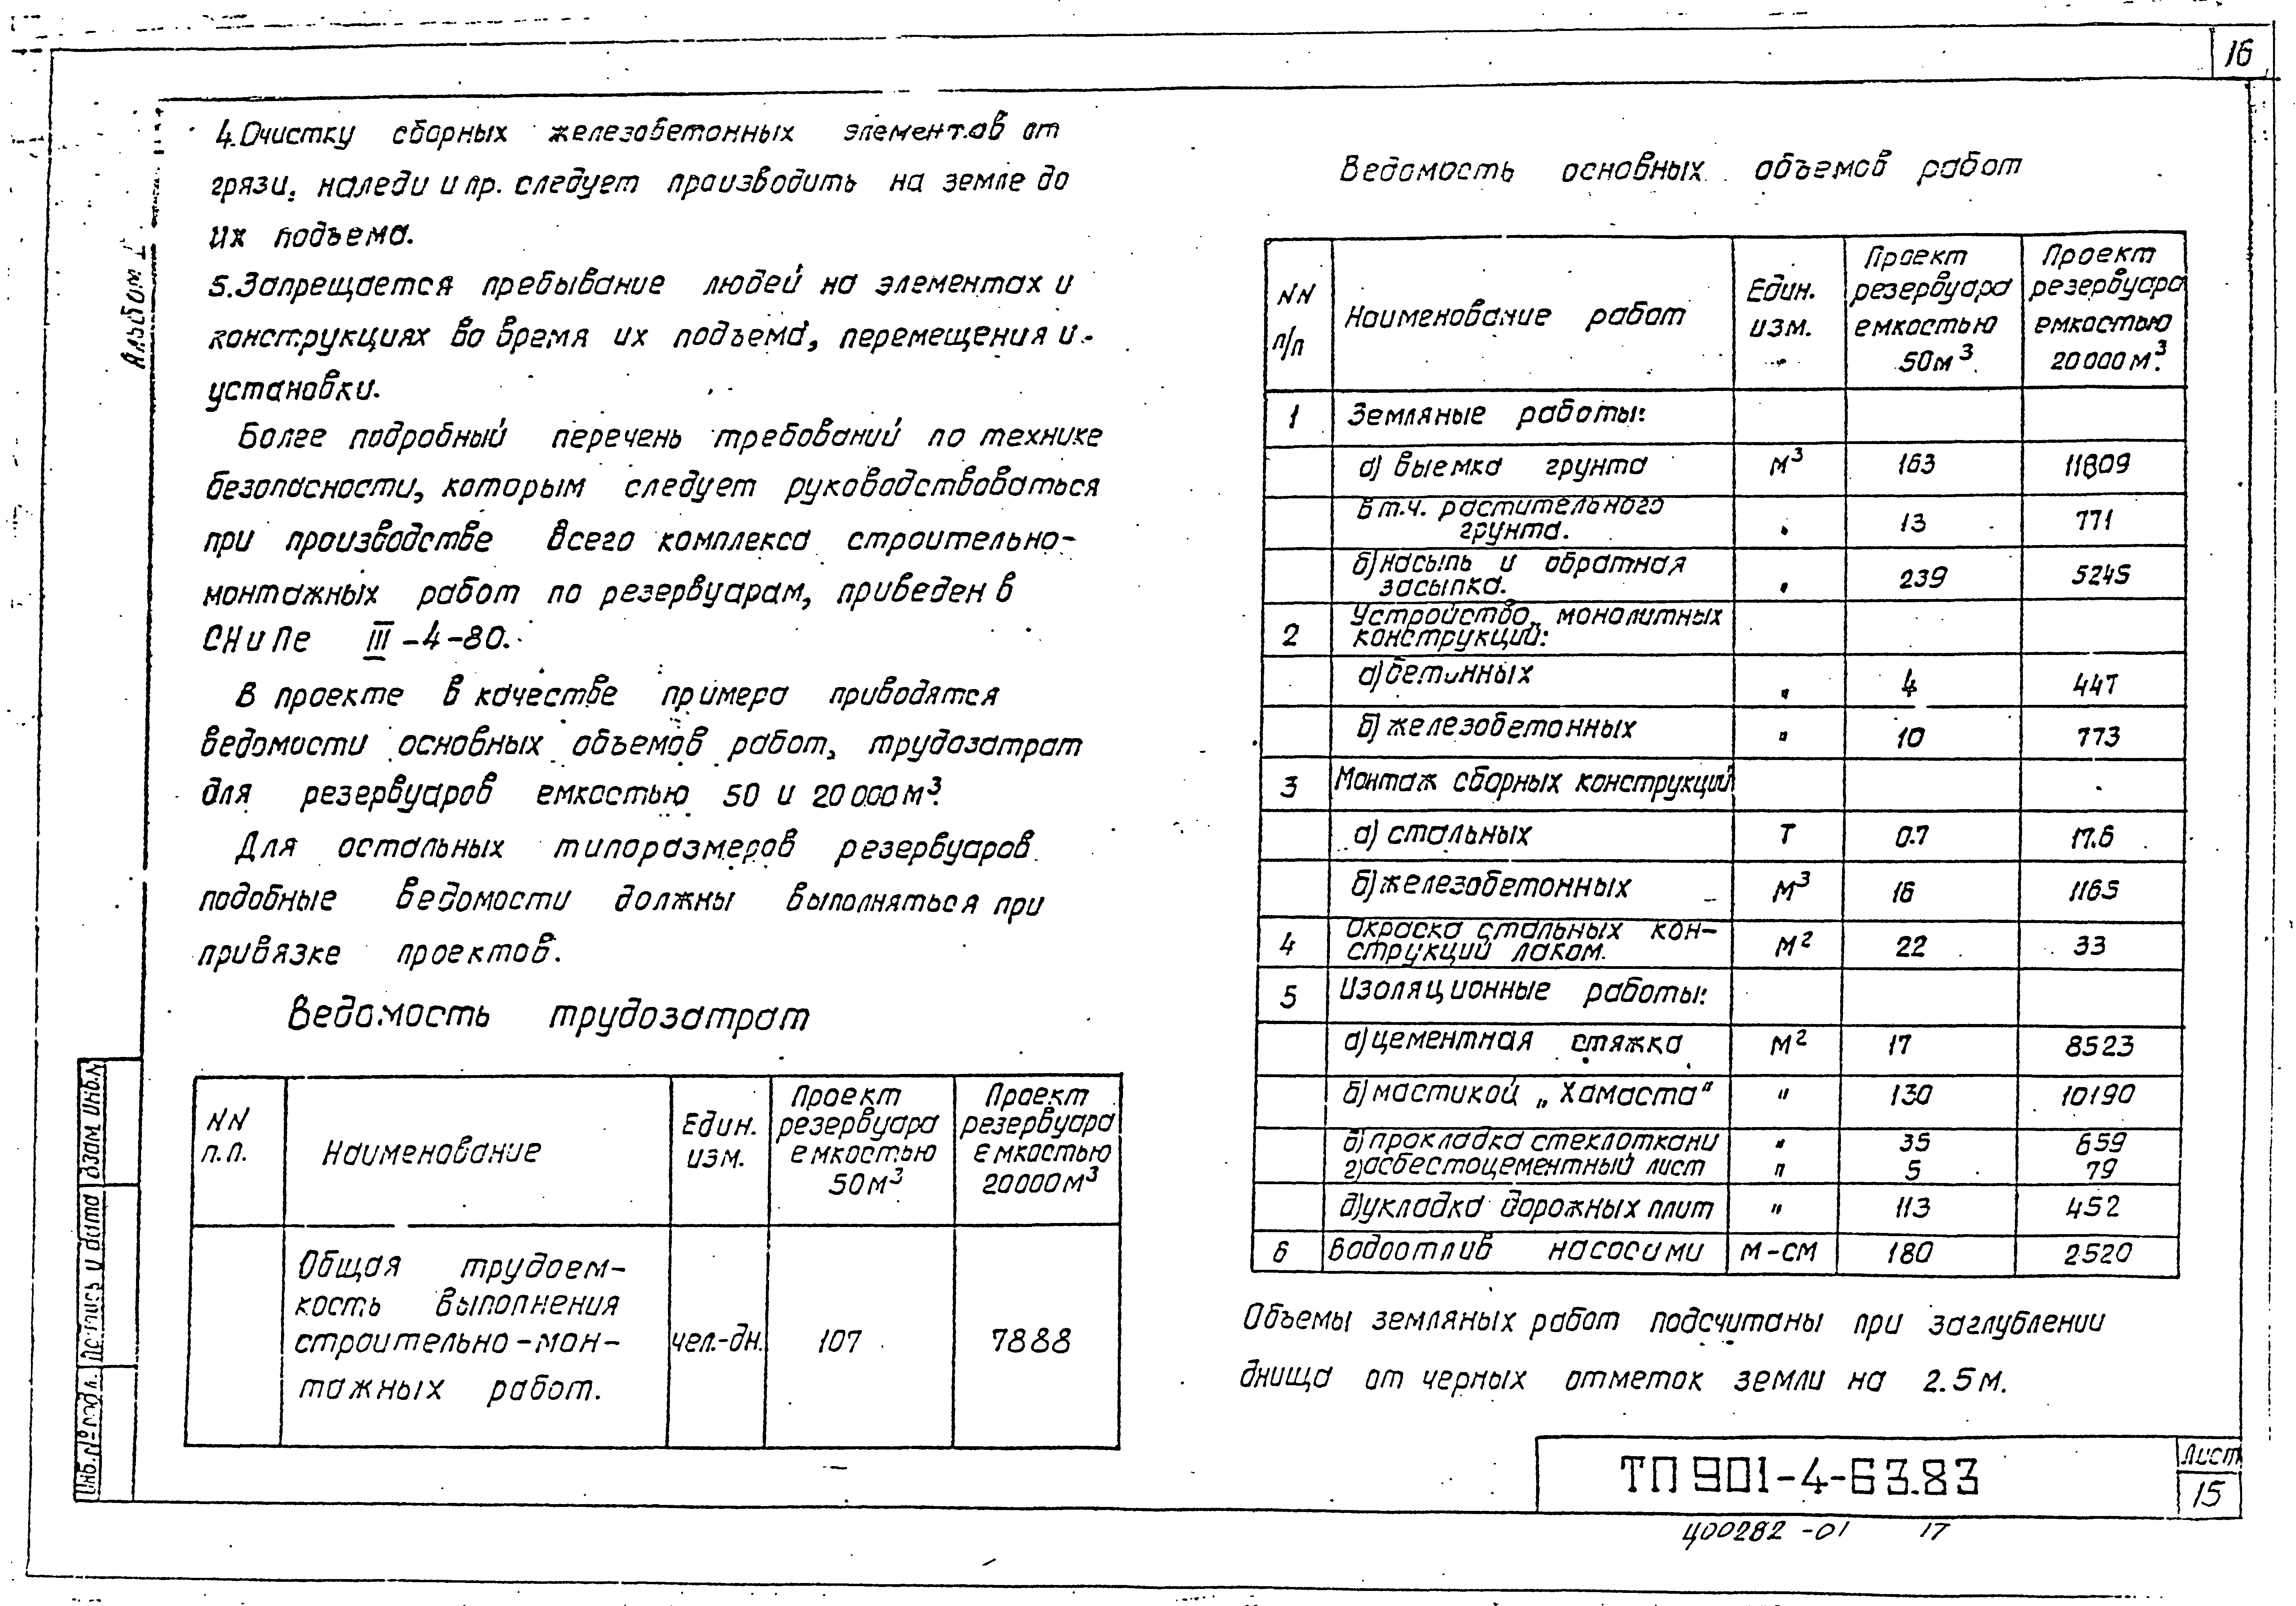 16
Альбом I
4. Очистку сборных железобетонных элементов от
грязи, наледи и пр. следует производить на земле до
их подъема.
5. Запрещается пребывание людей на элементах и
конструкциях во время их подъема, перемещения и
установки.
Более подробный перечень требований по технике
безопасности, которым следует руководствоваться
при производстве всего комплекса строительно-
монтажных работ по резервуарам, приведен в
СНиПе III-4-80.
В проекте в качестве примера приводятся
ведомости основных объемов работ, трудозатрат
для резервуаров емкостью 50 и 20000 м³.
Для остальных типоразмеров резервуаров
подобные ведомости должны выполняться при
привязке проектов.
Ведомость трудозатрат
NN п.п. Наименование Един. изм. Проект резервуара емкостью 50м³ Проект резервуара емкостью 20000м³
Общая трудоем-
кость выполнения
строительно-мон- чел.-дн. 107 7888
тажных работ.
Ведомость основных объемов работ
NN п/п Наименование работ Един. изм. Проект резервуара емкостью 50м³ Проект резервуара емкостью 20000м³.
1 Земляные работы:
а) выемка грунта м³ 163 11809
в т.ч. растительного
грунта. " 13 771
б) насыпь и обратная
засыпка. " 239 5245
2 Устройство монолитных
конструкций:
а) бетонных " 4 447
б) железобетонных " 10 773
3 Монтаж сборных конструкций
а) стальных т 0.7 17.6
б) железобетонных м³ 16 1165
4 Окраска стальных кон-
струкций лаком. м² 22 33
5 Изоляционные работы:
а) цементная стяжка м² 17 8523
б) мастикой „Хамаста“ " 130 10190
в) прокладка стеклоткани " 35 659
г) асбестоцементный лист " 5 79
д) укладка дорожных плит " 113 452
6 Водоотлив насосами м-см 180 2520
Объемы земляных работ подсчитаны при заглублении
днища от черных отметок земли на 2.5м.
Инв.№подл. Подпись и дата Взам инв.N
ТП 901-4-63.83
Лист
15
Ц00282-01 17